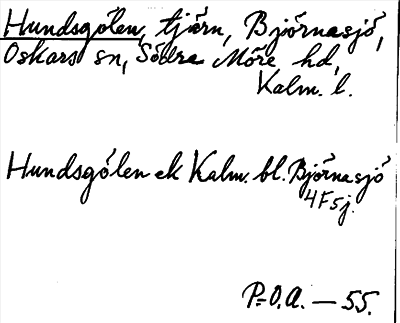 Hundsgölen, tjärn, Björnasjö,
Oskars sn, Södra Möre hd,
Kalm. l.
Hundsgölen ek Kalm. bl. Björnasjö
4F5j.
P-O.A. — 55.